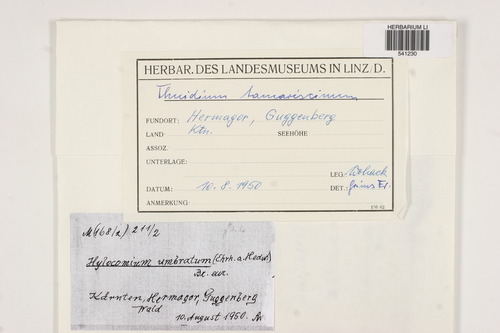 HERBARIUM LI
541230
HERBAR. DES LANDESMUSEUMS IN LINZ/D.
Thuidium tamariscinum
FUNDORT: Hermagor, Guggenberg
LAND Ktn. SEEHÖHE
ASSOZ.
UNTERLAGE:
LEG.
DATUM: 10.8.1950 DET.:
ANMERKUNG:
211/2
Hylocomium umbratum (Ehrh. a. Hedw.)
Br. eur.
Kärnten, Hermagor, Guggenberg
Wald
10. August 1950.